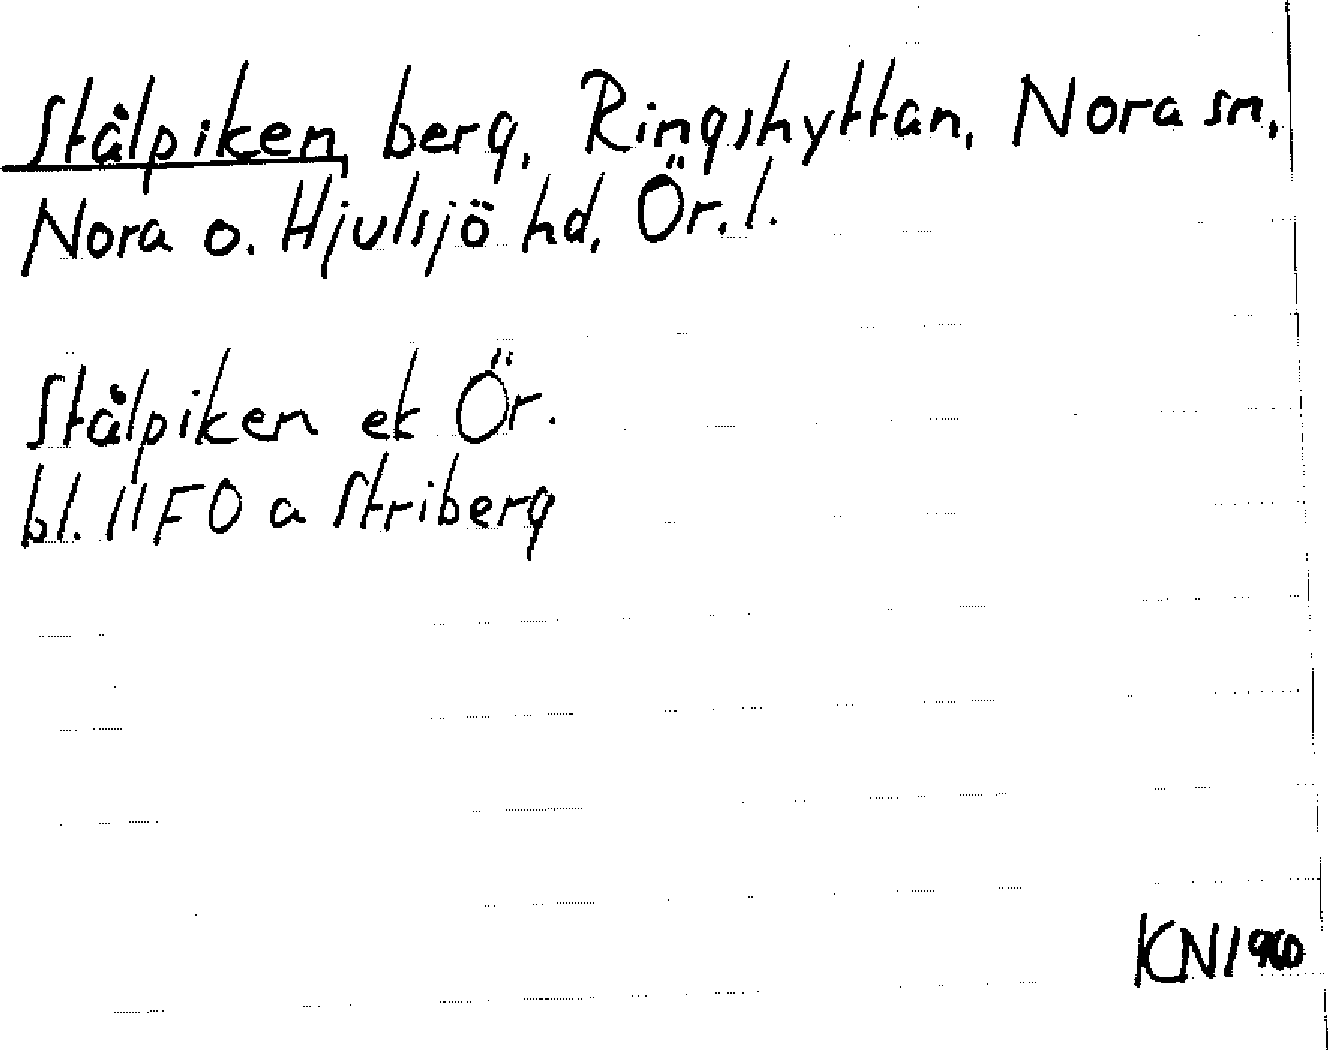 Stålpiken, berg, Ringshyttan, Nora sn,
Nora o. Hjulsjö hd, Ör. l.
Stålpiken ek Ör.
bl. 11F0 a Striberg
KN 1960